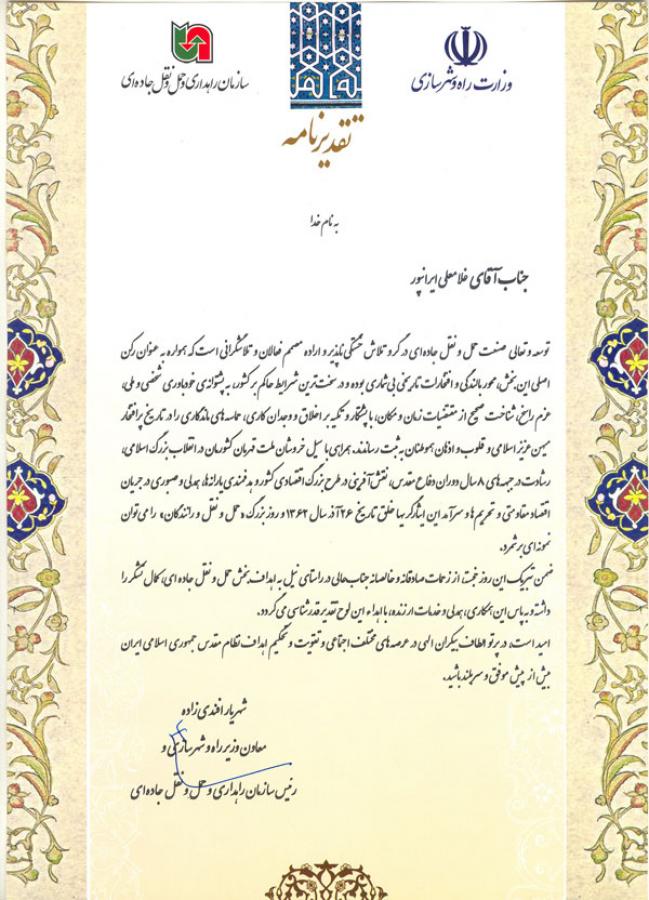 وزارت راه و شهرسازی
سازمان راهداری و حمل و نقل جاده ای
تقدیرنامه
به نام خدا
جناب آقای غلامعلی ایرانپور
توسعه و تعالی صنعت حمل و نقل جاده ای در گرو تلاش خستگی ناپذیر و اراده مصمم فعالان و تلاشگرانی است که همواره به عنوان رکن
اصلی این بخش، محور بالندگی و افتخارات تاریخی بی شماری بوده و در سخت ترین شرایط حاکم بر کشور، به پشتوانه ی خودباوری شخصی و ملی،
عزم راسخ، شناخت صحیح از مقتضیات زمان و مکان، با پشتکار و تکیه بر اخلاق و وجدان کاری، حماسه های ماندگاری را در تاریخ پر افتخار
میهن عزیز اسلامی و قلوب و اذهان هموطنان به ثبت رساندند. همراهی با سیل خروشان ملت قهرمان کشورمان در انقلاب بزرگ اسلامی،
رشادت در جبهه های ۸ سال دوران دفاع مقدس، نقش آفرینی در طرح بزرگ اقتصادی کشور و هدفمندی یارانه ها، همدلی و صبوری در جریان
اقتصاد مقاومتی و تحریم ها و سرآمد این ایثارگری ها خلق تاریخ ۲۶ آذر سال ۱۳۶۲ و روز بزرگ «حمل و نقل و رانندگان» را می توان
نمونه ای برشمرد.
ضمن تبریک این روز خجسته، از زحمات صادقانه و خالصانه جنابعالی در راستای نیل به اهداف بخش حمل و نقل جاده ای، کمال تشکر را
داشته و به پاس این همکاری، همدلی و خدمات ارزنده، با اهداء این لوح تقدیر قدرشناسی می گردد.
امید است، در پرتو الطاف بیکران الهی در عرصه های مختلف اجتماعی و تقویت و تحکیم اهداف نظام مقدس جمهوری اسلامی ایران
بیش از پیش موفق و سربلند باشید.
شهریار افندی زاده
معاون وزیر راه و شهرسازی و
رئیس سازمان راهداری و حمل و نقل جاده ای